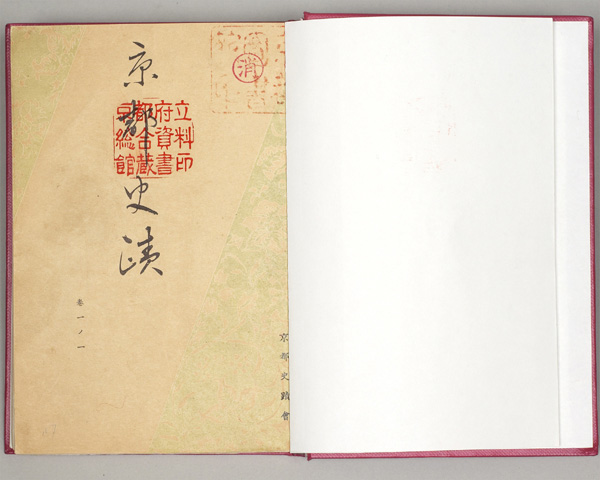 京都史蹟
京都府立
総合資料
館蔵書印
消
卷一ノ一
京都史蹟會